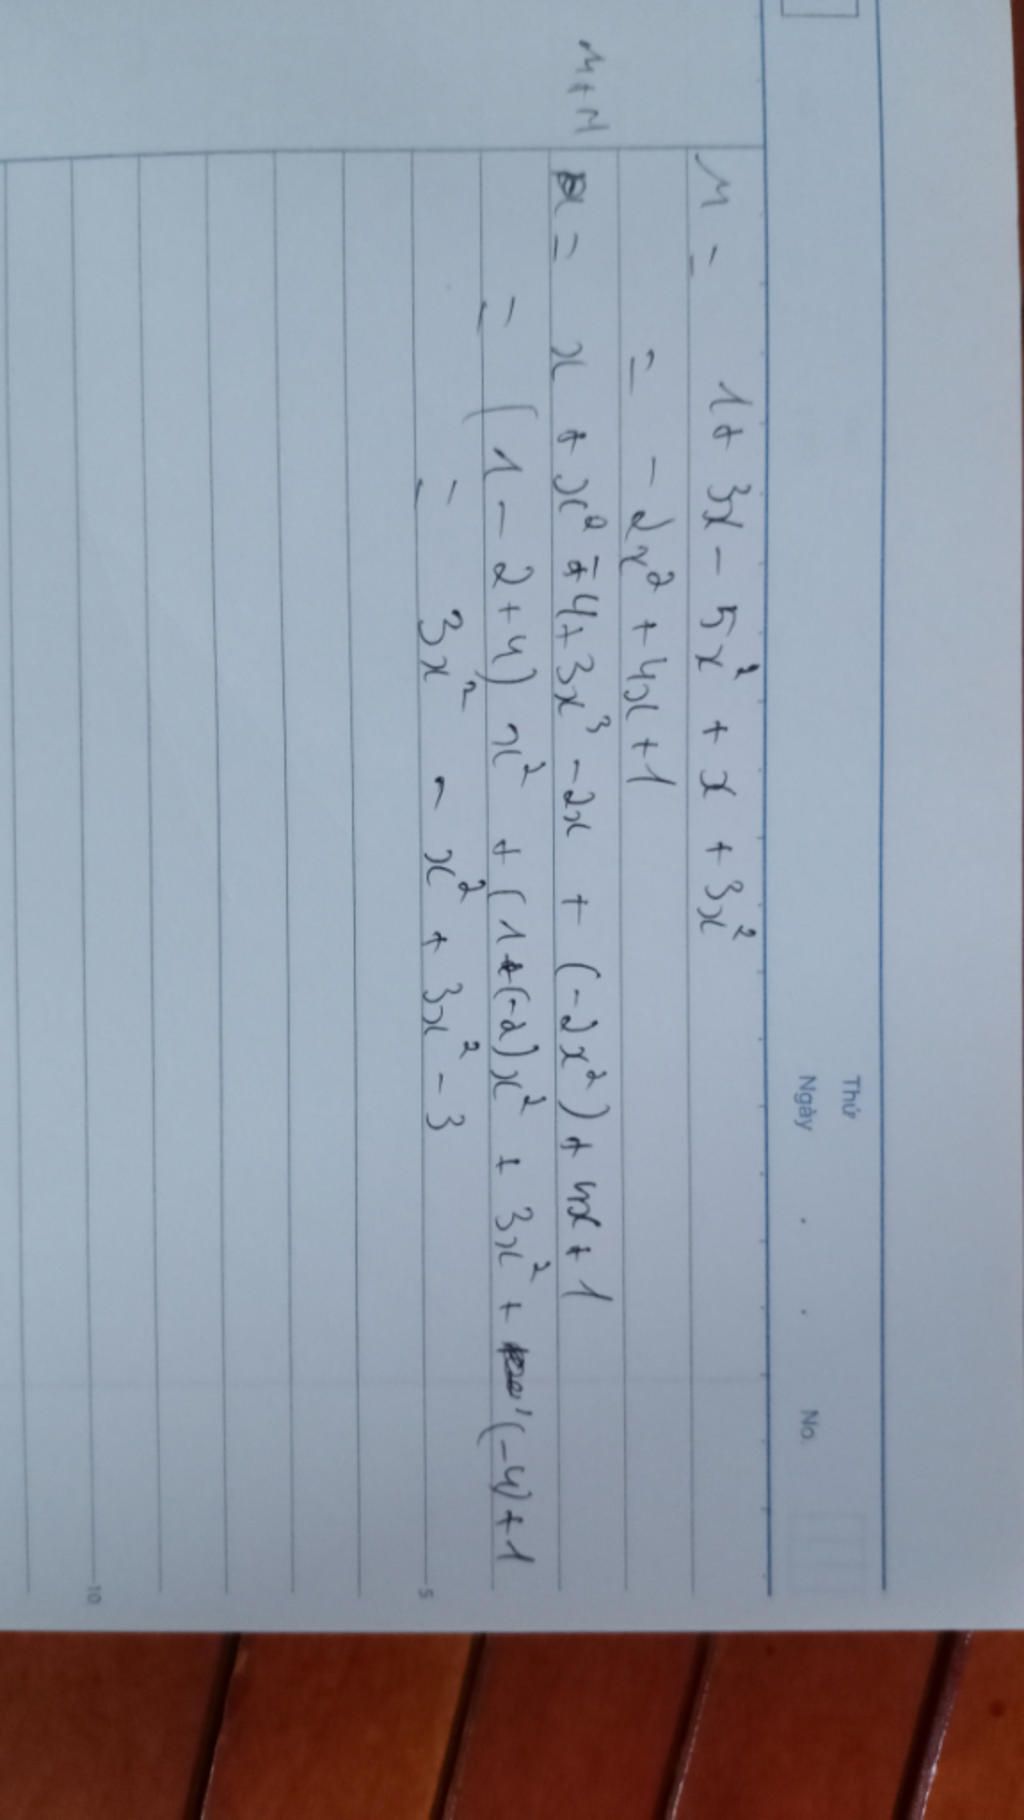 Thứ
Ngày . . No.
M = 1 + 3x - 5x² + x + 3x²
= - 2x² + 4x + 1
M+N = x + x² - 4 + 3x³ - 2x + (-2x²) + 4x + 1
= (1 - 2 + 4) x² + (1 + (-2) x² + 3x² + (-4) + 1
= 3x² - x² + 3x² - 3
5
10